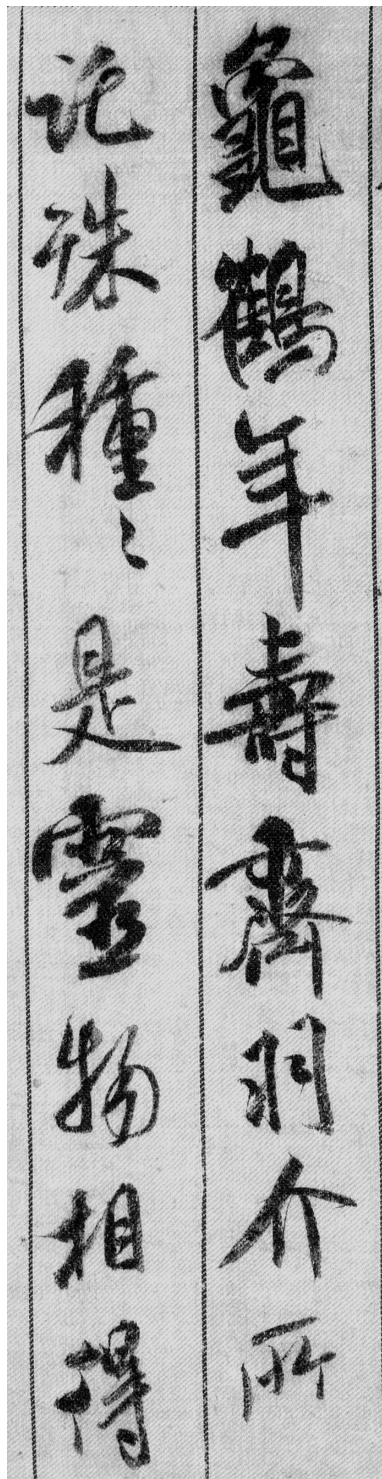 龜鶴年壽齊羽介所
託殊種〻是靈物相得